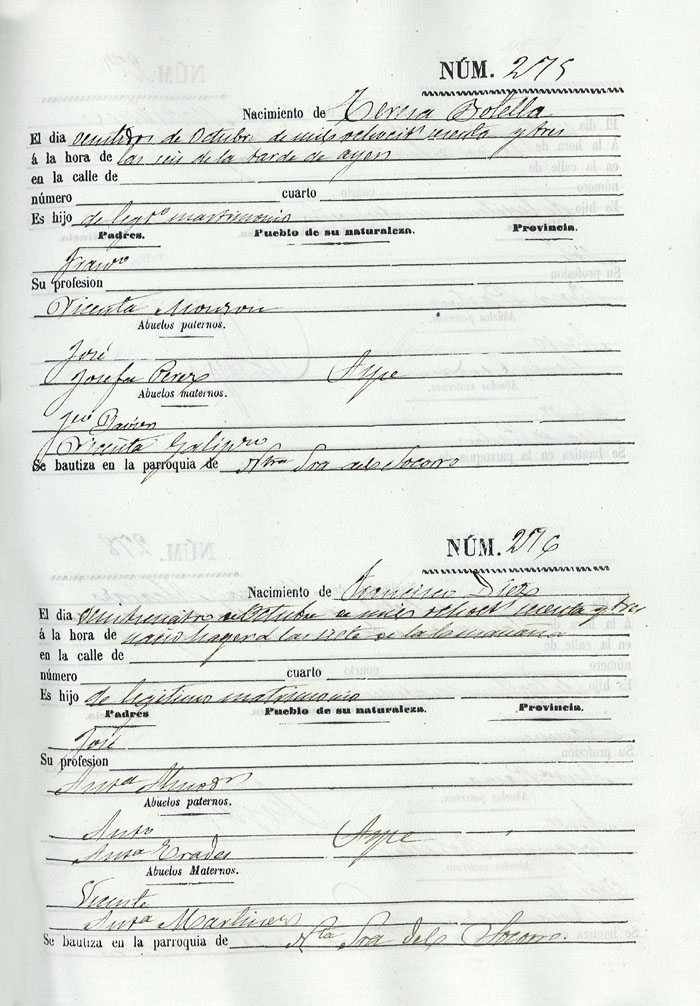 NÚM. 275
Nacimiento de Teresa Botella
El dia veintidos de Octubre de mil ochoct sesenta y tres
á la hora de las seis de la tarde de ayer
en la calle de
número cuarto
Es hijo de legmo matrimonio
Padres. Pueblo de su naturaleza. Provincia.
Franco
Su profesion
Vicenta Monzon
Abuelos paternos.
José
Josefa Perez Aspe
Abuelos maternos.
Vicenta Galipro
Se bautiza en la parroquia de Ntra Sra del Socorro
NÚM. 276
Nacimiento de Francisco Diez
El dia veinticuatro de Octubre de mil ochoct sesenta y tres
á la hora de nació hayer á las siete de la mañana
en la calle de
número cuarto
Es hijo de legitimo matrimonio
Padres Pueblo de su naturaleza. Provincia.
José
Su profesion
Anta Almodr
Abuelos paternos.
Anto Aspe
Anta Erades
Abuelos Maternos.
Vicente
Anta Martinez
Se bautiza en la parroquia de Nta Sra del Socorro.